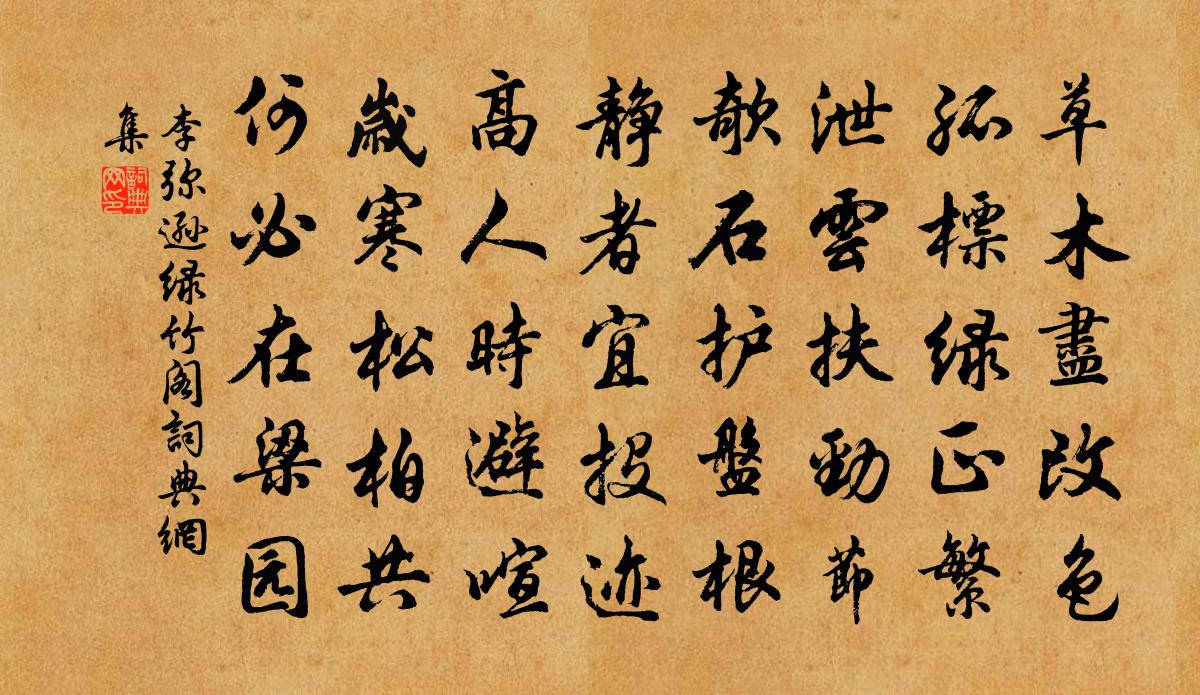 草木盡改色
孤標緑正繁
泄雲扶勁節
欹石护盤根
静者宜投迹
高人時避喧
歲寒松柏共
何必在梁园
李弥遜緑竹阁詞典網
集
詞典网印